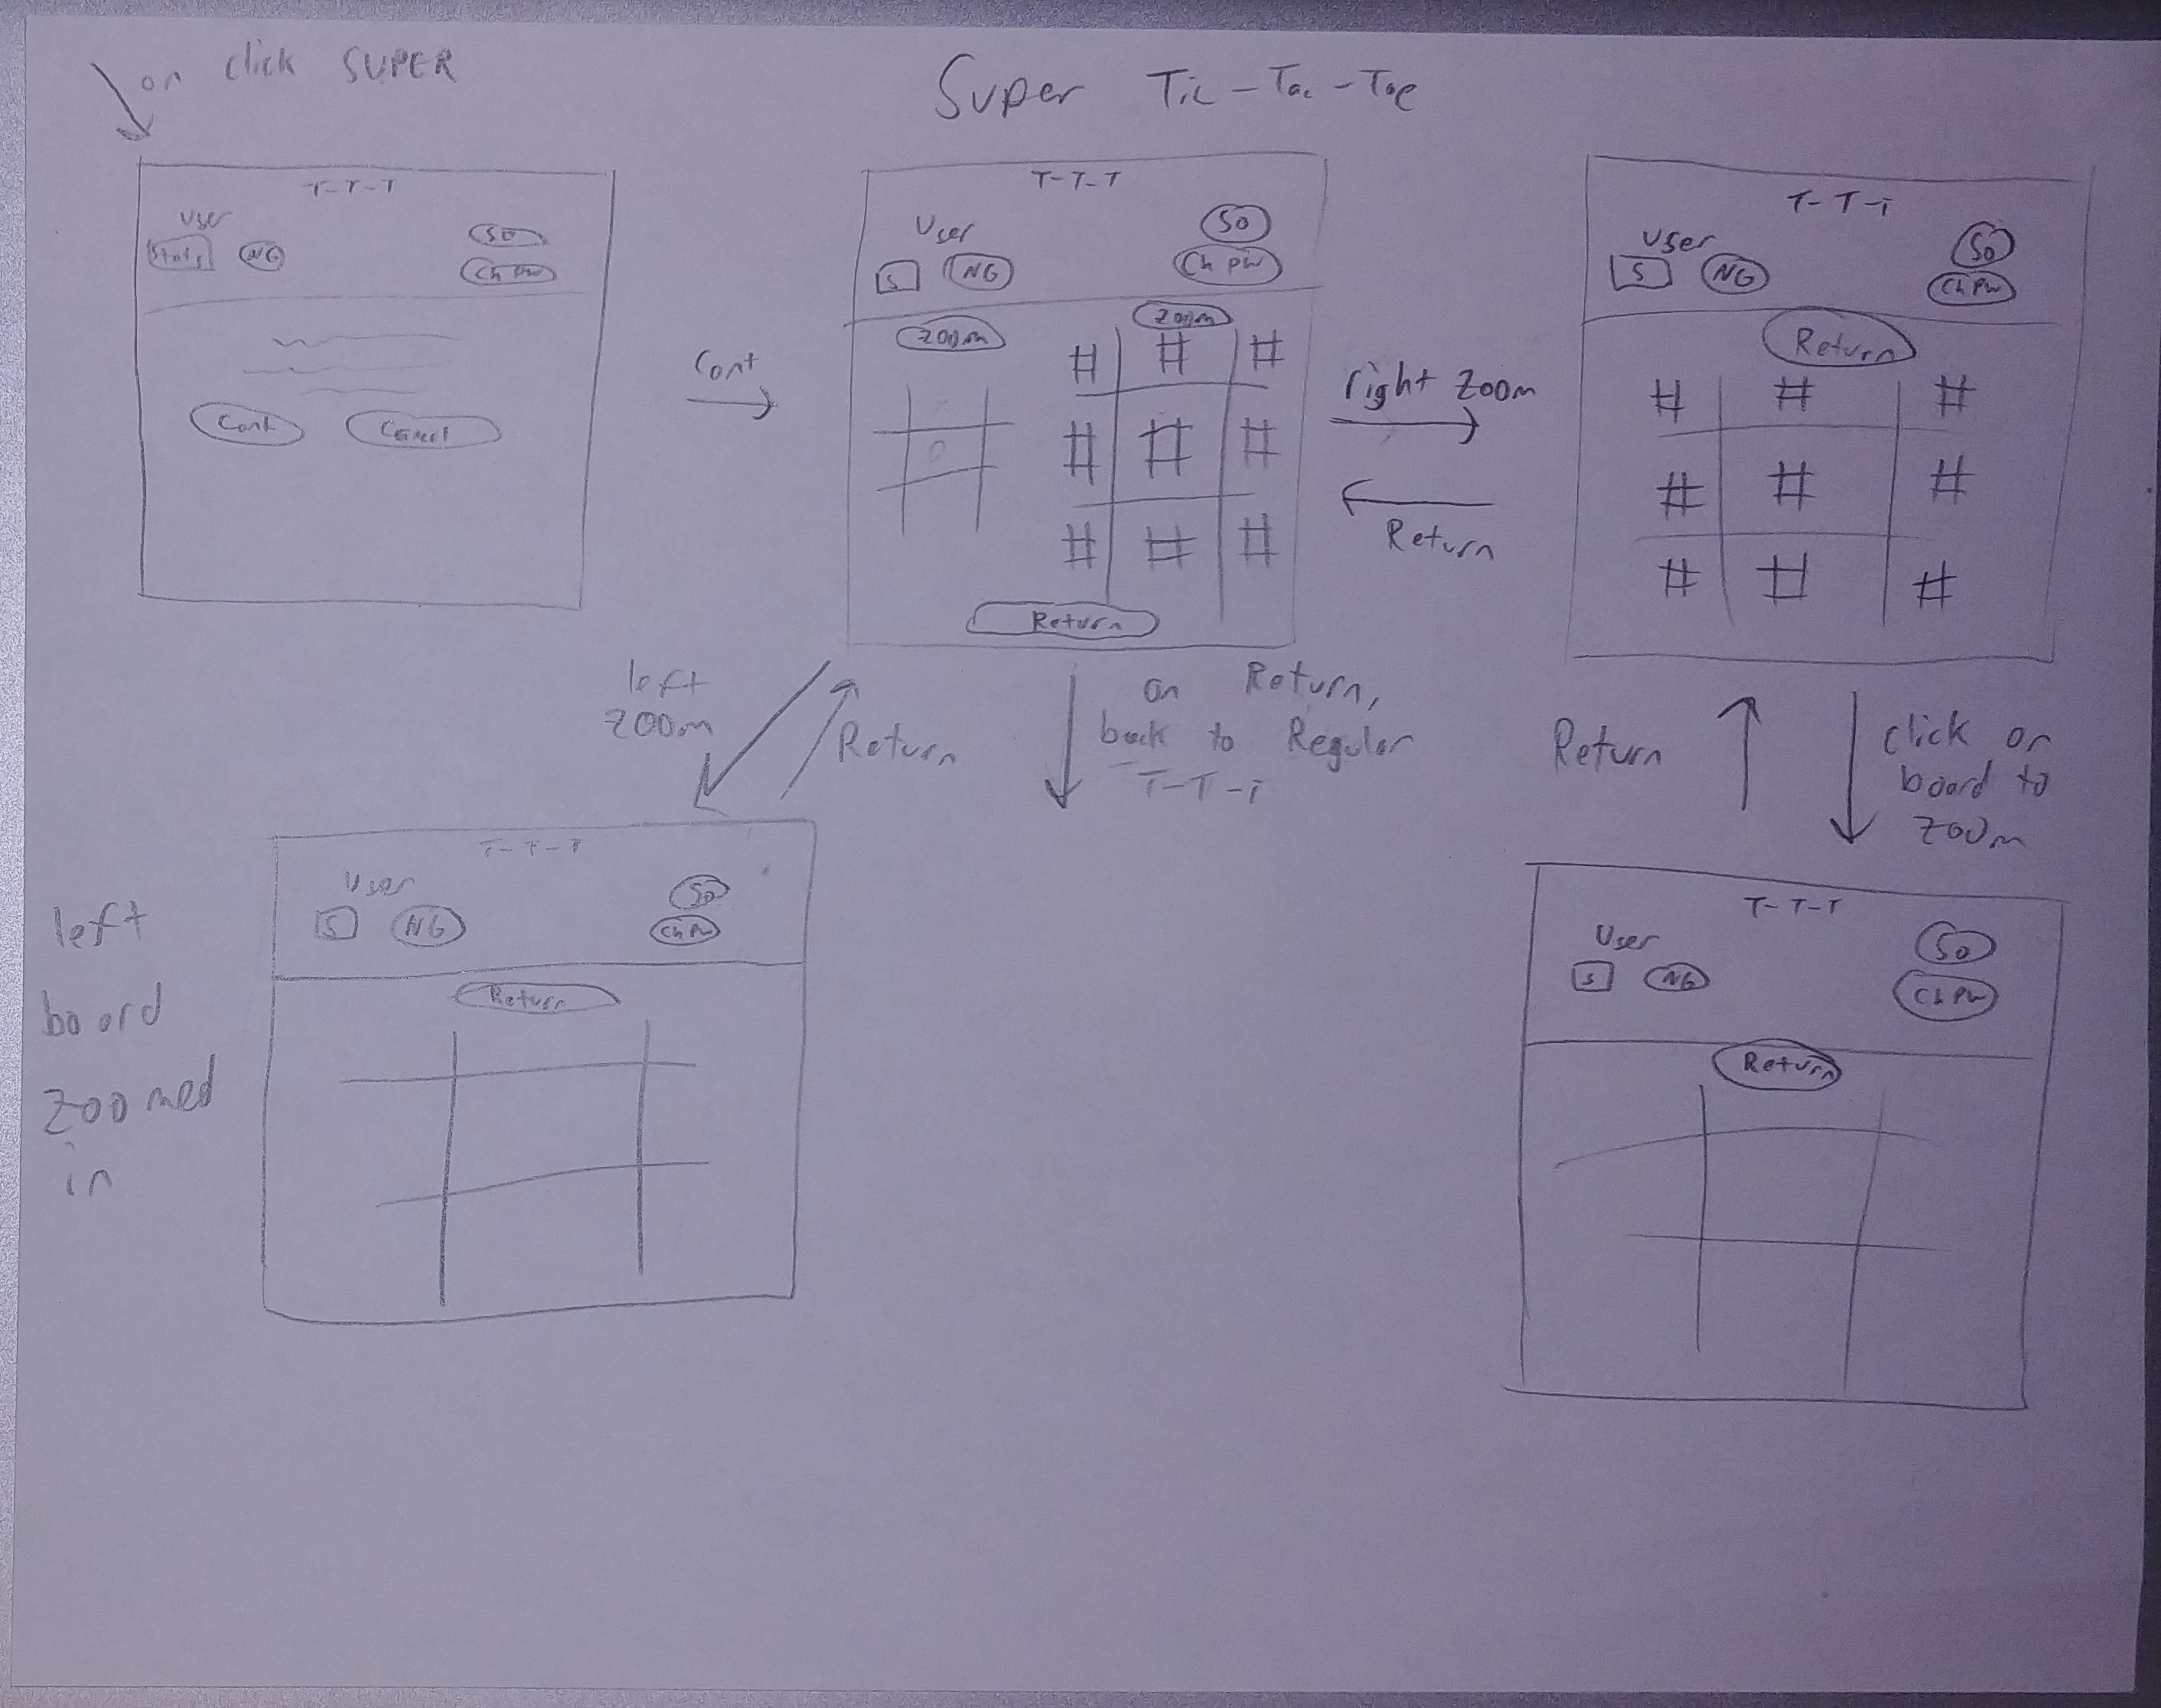 on click SUPER
Super Tic-Tac-Toe
T-T-T
User
Stats NG
SO
Ch PW
Cont Cancel
Cont
T-T-T
User
S NG
SO
Ch PW
Zoom Zoom
Return
right Zoom
Return
T-T-T
User
S NG
SO
Ch PW
Return
left
zoom
Return
on Return,
back to Regular
T-T-T
Return
click on
board to
zoom
left
board
zoomed
in
T-T-T
User
S NG
SO
Ch PW
Return
T-T-T
User
S NG
SO
Ch PW
Return